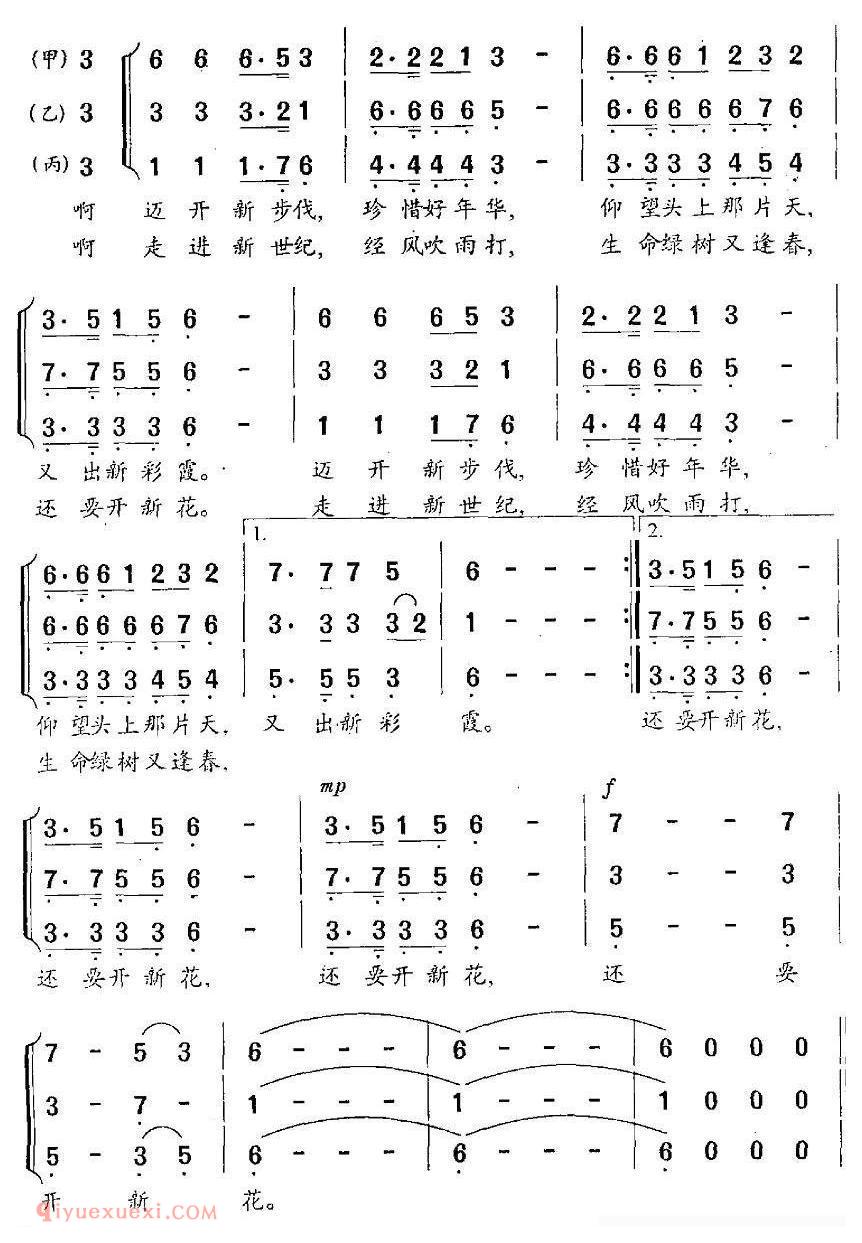 (甲) 3 6 6 6·5 3 | 2·2 2 1 3 - | 6·6 6 1 2 3 2 |
(乙) 3 3 3 3·2 1 | 6·6 6 6 5 - | 6·6 6 6 6 7 6 |
(丙) 3 1 1 1·7 6 | 4·4 4 4 3 - | 3·3 3 3 4 5 4 |
啊 迈开新步伐, 珍惜好年华, 仰望头上那片天,
啊 走进新世纪, 经风吹雨打, 生命绿树又逢春,
3·5 1 5 6 - | 6 6 6 5 3 | 2·2 2 1 3 - |
7·7 5 5 6 - | 3 3 3 2 1 | 6·6 6 6 5 - |
3·3 3 3 6 - | 1 1 1 7 6 | 4·4 4 4 3 - |
又出新彩霞。 迈开新步伐, 珍惜好年华,
还要开新花。 走进新世纪, 经风吹雨打,
1. 2.
6·6 6 1 2 3 2 | 7·7 7 5 | 6 - - - :| 3·5 1 5 6 - |
6·6 6 6 6 7 6 | 3·3 3 3 2 | 1 - - - :| 7·7 5 5 6 - |
3·3 3 3 4 5 4 | 5·5 5 3 | 6 - - - :| 3·3 3 3 6 - |
仰望头上那片天, 又出新彩霞。 还要开新花,
生命绿树又逢春,
mp f
3·5 1 5 6 - | 3·5 1 5 6 - | 7 - - 7 |
7·7 5 5 6 - | 7·7 5 5 6 - | 3 - - 3 |
3·3 3 3 6 - | 3·3 3 3 6 - | 5 - - 5 |
还要开新花, 还要开新花, 还要
7 - 5 3 | 6 - - - | 6 - - - | 6 0 0 0 ||
3 - 7 - | 1 - - - | 1 - - - | 1 0 0 0 ||
5 - 3 5 | 6 - - - | 6 - - - | 6 0 0 0 ||
开新花。
qiyuexuexi.com